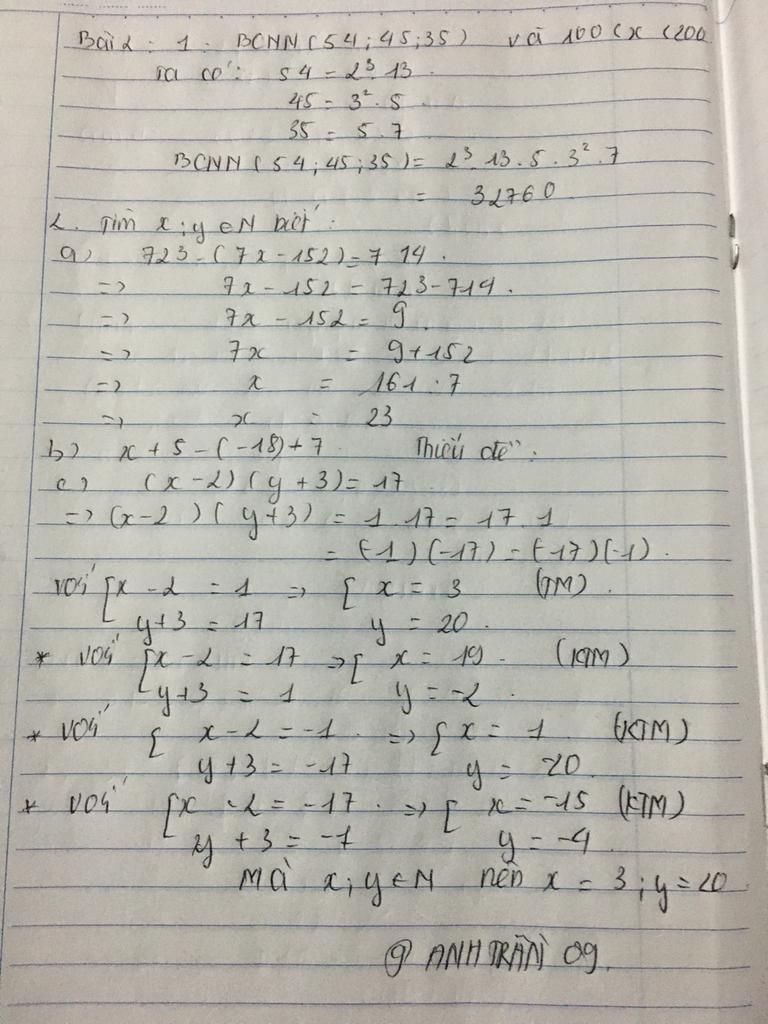 Bài 2 : 1 . BCNN ( 54 ; 45 ; 35 ) và 100 < x < 200
Ta có : 54 = 2³ . 13 .
45 = 3² . 5
35 = 5 . 7
BCNN ( 54 ; 45 ; 35 ) = 2³ . 13 . 5 . 3² . 7
= 32760
2 . Tìm x ; y ∈ N biết :
a) 723 - ( 7x - 152 ) = 714 .
=> 7x - 152 = 723 - 714 .
=> 7x - 152 = 9 .
=> 7x = 9 + 152
=> x = 161 : 7
=> x = 23
b) x + 5 - ( -18 ) + 7 . Thiếu đề :
c) ( x - 2 ) ( y + 3 ) = 17
=> ( x - 2 ) ( y + 3 ) = 1 . 17 = 17 . 1
= (-1) (-17) = (-17) (-1) .
Với { x - 2 = 1 => { x = 3 (TM) .
y + 3 = 17 y = 20 .
* Với { x - 2 = 17 => { x = 19 . (KTM)
y + 3 = 1 y = -2 .
* Với { x - 2 = -1 . => { x = 1 (KTM)
y + 3 = -17 y = 20 .
* Với { x - 2 = -17 . => { x = -15 (KTM)
y + 3 = -1 y = -4 .
Mà x ; y ∈ N nên x = 3 ; y = 20
@ ANH TRẦN 09 .